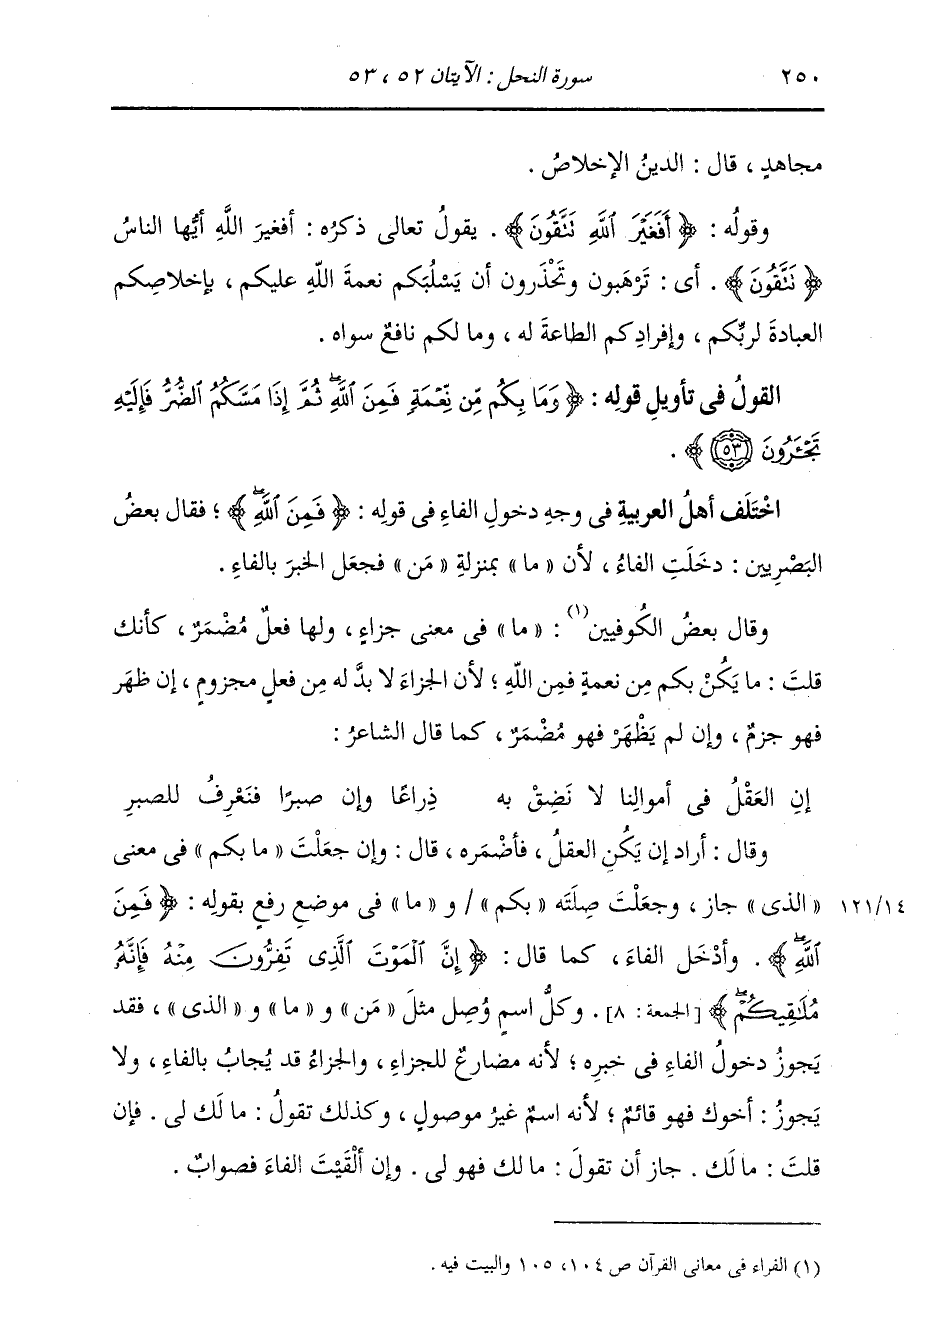 ٢٥٠ سورة النحل : الآيتان ٥٢ ، ٥٣
مجاهدٍ ، قال : الدينُ الإخلاصُ .
وقولُه : ﴿ أَفَغَيْرَ ٱللَّهِ نَتَّقُونَ ﴾ . يقولُ تعالى ذكرُه : أفغيرَ اللَّهِ أيُّها الناسُ
﴿ نَتَّقُونَ ﴾ . أى : تَرْهَبون وتَحْذَرون أن يَسْلُبَكم نعمةَ اللَّهِ عليكم ، بإخلاصِكم
العبادةَ لربِّكم ، وإفرادِكم الطاعةَ له ، وما لكم نافعٌ سواه .
القولُ فى تأويلِ قولِه : ﴿ وَمَا بِكُم مِّن نِّعْمَةٍ فَمِنَ ٱللَّهِۖ ثُمَّ إِذَا مَسَّكُمُ ٱلضُّرُّ فَإِلَيْهِ
تَجْـَٔرُونَ ٥٣ ﴾ .
اخْتَلَف أهلُ العربيةِ فى وجهِ دخولِ الفاءِ فى قولِه : ﴿ فَمِنَ ٱللَّهِۖ ﴾ ؛ فقال بعضُ
البَصْرِيين : دخَلَتِ الفاءُ ، لأن « ما » بمنزلةِ « مَن » فجعَل الخبرَ بالفاءِ .
وقال بعضُ الكُوفيين(١) : « ما » فى معنى جزاءٍ ، ولها فعلٌ مُضْمَرٌ ، كأنك
قلتَ : ما يَكُنْ بكم مِن نعمةٍ فمِن اللَّهِ ؛ لأن الجزاءَ لا بدَّ له مِن فعلٍ مجزومٍ ، إن ظهَر
فهو جزمٌ ، وإن لم يَظْهَرْ فهو مُضْمَرٌ ، كما قال الشاعرُ :
إنِ العَقْلُ فى أموالِنا لا نَضِقْ به ذِراعًا وإن صبرًا فنَعْرِفُ للصبرِ
وقال : أراد إن يَكُنِ العقلُ ، فأضْمَره ، قال : وإن جعَلْتَ « ما بكم » فى معنى
« الذى » جاز ، وجعَلْتَ صِلَتَه « بكم » / و « ما » فى موضعِ رفعٍ بقولِه : ﴿ فَمِنَ ١٢١/١٤
ٱللَّهِۖ ﴾ . وأدْخَل الفاءَ ، كما قال : ﴿ إِنَّ ٱلْمَوْتَ ٱلَّذِى تَفِرُّونَ مِنْهُ فَإِنَّهُ
مُلَٰقِيكُمْۖ ﴾ [الجمعة : ٨] . وكلُّ اسمٍ وُصِل مثلَ « مَن » و « ما » و « الذى » ، فقد
يَجوزُ دخولُ الفاءِ فى خبرِه ؛ لأنه مضارعٌ للجزاءِ ، والجزاءُ قد يُجابُ بالفاءِ ، ولا
يَجوزُ : أخوك فهو قائمٌ ؛ لأنه اسمٌ غيرُ موصولٍ ، وكذلك تقولُ : ما لَك لى . فإن
قلتَ : ما لَك . جاز أن تقولَ : ما لك فهو لى . وإن أَلْقَيْتَ الفاءَ فصوابٌ .
(١) الفراء فى معانى القرآن ص ١٠٤، ١٠٥ والبيت فيه .